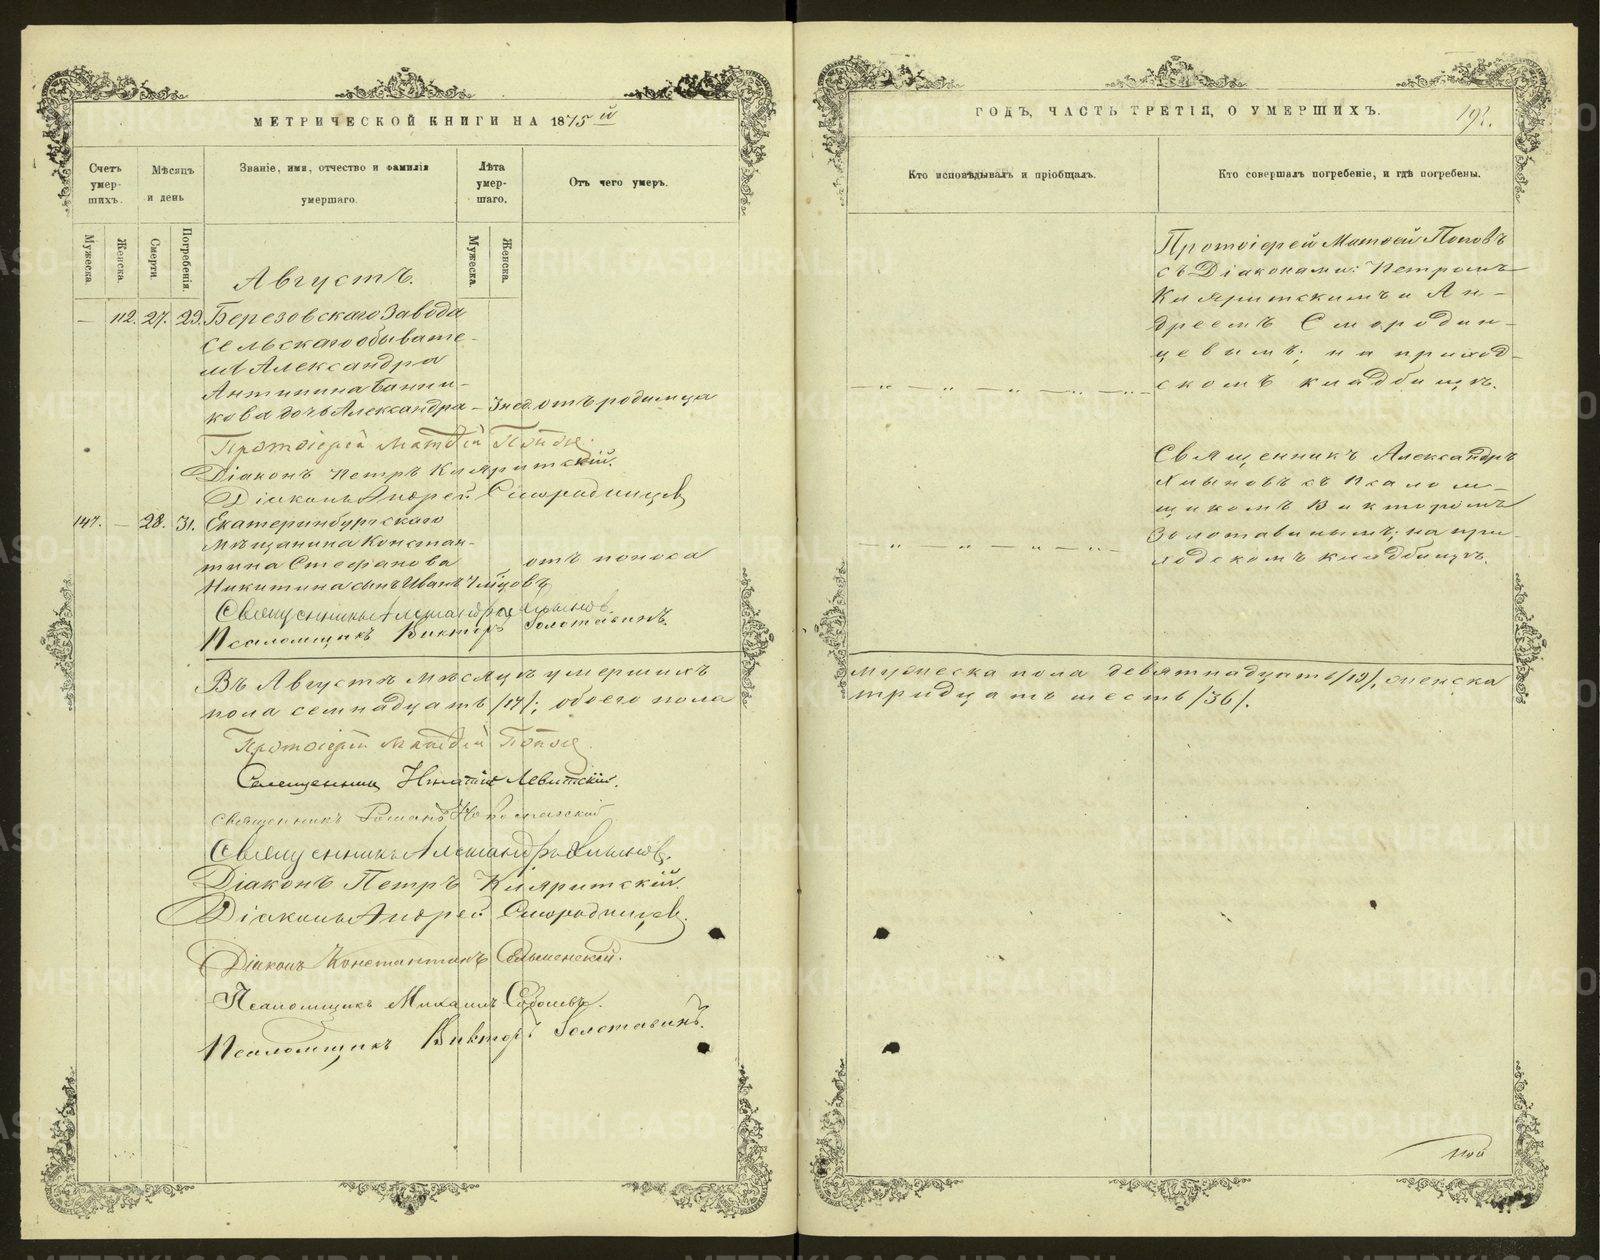 МЕТРИЧЕСКОЙ КНИГИ НА 1875й
Счетъ умерших.
Мѣсяцъ и день
Званіе, имя, отчество и фамилія умершаго.
Лѣта умершаго.
Отъ чего умеръ.
Мужеска.
Женска.
Смерти.
Погребенія.
Мужеска.
Женска.
Августъ.
— 112. 27. 29. Березовскаго Завода
сельскаго обывате-
ля Александра
Антипина Банни-
кова дочь Александра – 3 нед. отъ родимца
Протоіерей Матвей Поповъ.
Діаконъ Петръ
Діаконъ Андрей Смородинцевъ
147. — 28. 31. Екатеринбургскаго
мѣщанина Констан-
тина Стефанова
Никитина сынъ Иванъ отъ поноса
Священникъ Александръ Хлыновъ.
Псаломщикъ Викторъ Золотавинъ.
Въ Августѣ мѣсяцѣ умершихъ
пола семнадцать /17/; обоего пола
Протоіерей Матвей Поповъ.
Священникъ Игнатій Левитскій.
Священникъ Романъ
Священникъ Александръ Хлыновъ.
Діаконъ Петръ
Діаконъ Андрей Смородинцевъ.
Діаконъ Константинъ
Псаломщикъ Михаилъ
Псаломщикъ Викторъ Золотавинъ.
ГОДЪ, ЧАСТЬ ТРЕТІЯ, О УМЕРШИХЪ.
192.
Кто исповѣдывалъ и пріобщалъ.
Кто совершалъ погребеніе, и гдѣ погребены.
Протоіерей Матѳей Поповъ
съ Діаконами: Петромъ
и Ан-
дреемъ Смородин-
цевымъ; на приход-
скомъ кладбищѣ.
Священникъ Александръ
Хлыновъ съ Псалом-
щикомъ Викторомъ
Золотавинымъ; на при-
ходскомъ кладбищѣ.
мужеска пола девятнадцать /19/, женска
тридцать шесть /36/.